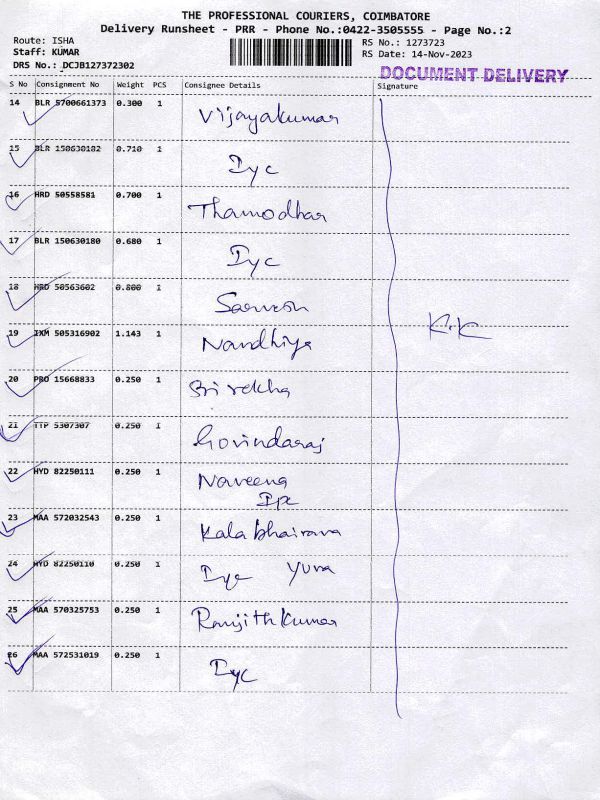 THE PROFESSIONAL COURIERS, COIMBATORE
Delivery Runsheet - PRR - Phone No.:0422-3505555 - Page No.:2
Route: ISHA RS No.: 1273723
Staff: KUMAR RS Date: 14-Nov-2023
DRS No.: DCJB127372302
DOCUMENT DELIVERY
S No Consignment No Weight PCS Consignee Details Signature
14 BLR 5700661373 0.300 1 Vijayakumar
15 BLR 150630182 0.710 1 Iyc
16 HRD 50558581 0.700 1 Thamodhar
17 BLR 150630180 0.680 1 Iyc
18 HRD 50563602 0.800 1 Sarvesh
19 IXM 505316902 1.143 1 Nandhiya
K.K
20 PRO 15668833 0.250 1 Sri rekha
21 TTP 5307307 0.250 1 Govindaraj
22 HYD 82250111 0.250 1 Naveena
23 MAA 572032543 0.250 1 Kalabhairava
24 HYD 82250110 0.250 1 Iyc Yuva
25 MAA 570325753 0.250 1 Ranjithkumar
26 MAA 572531019 0.250 1 Iyc